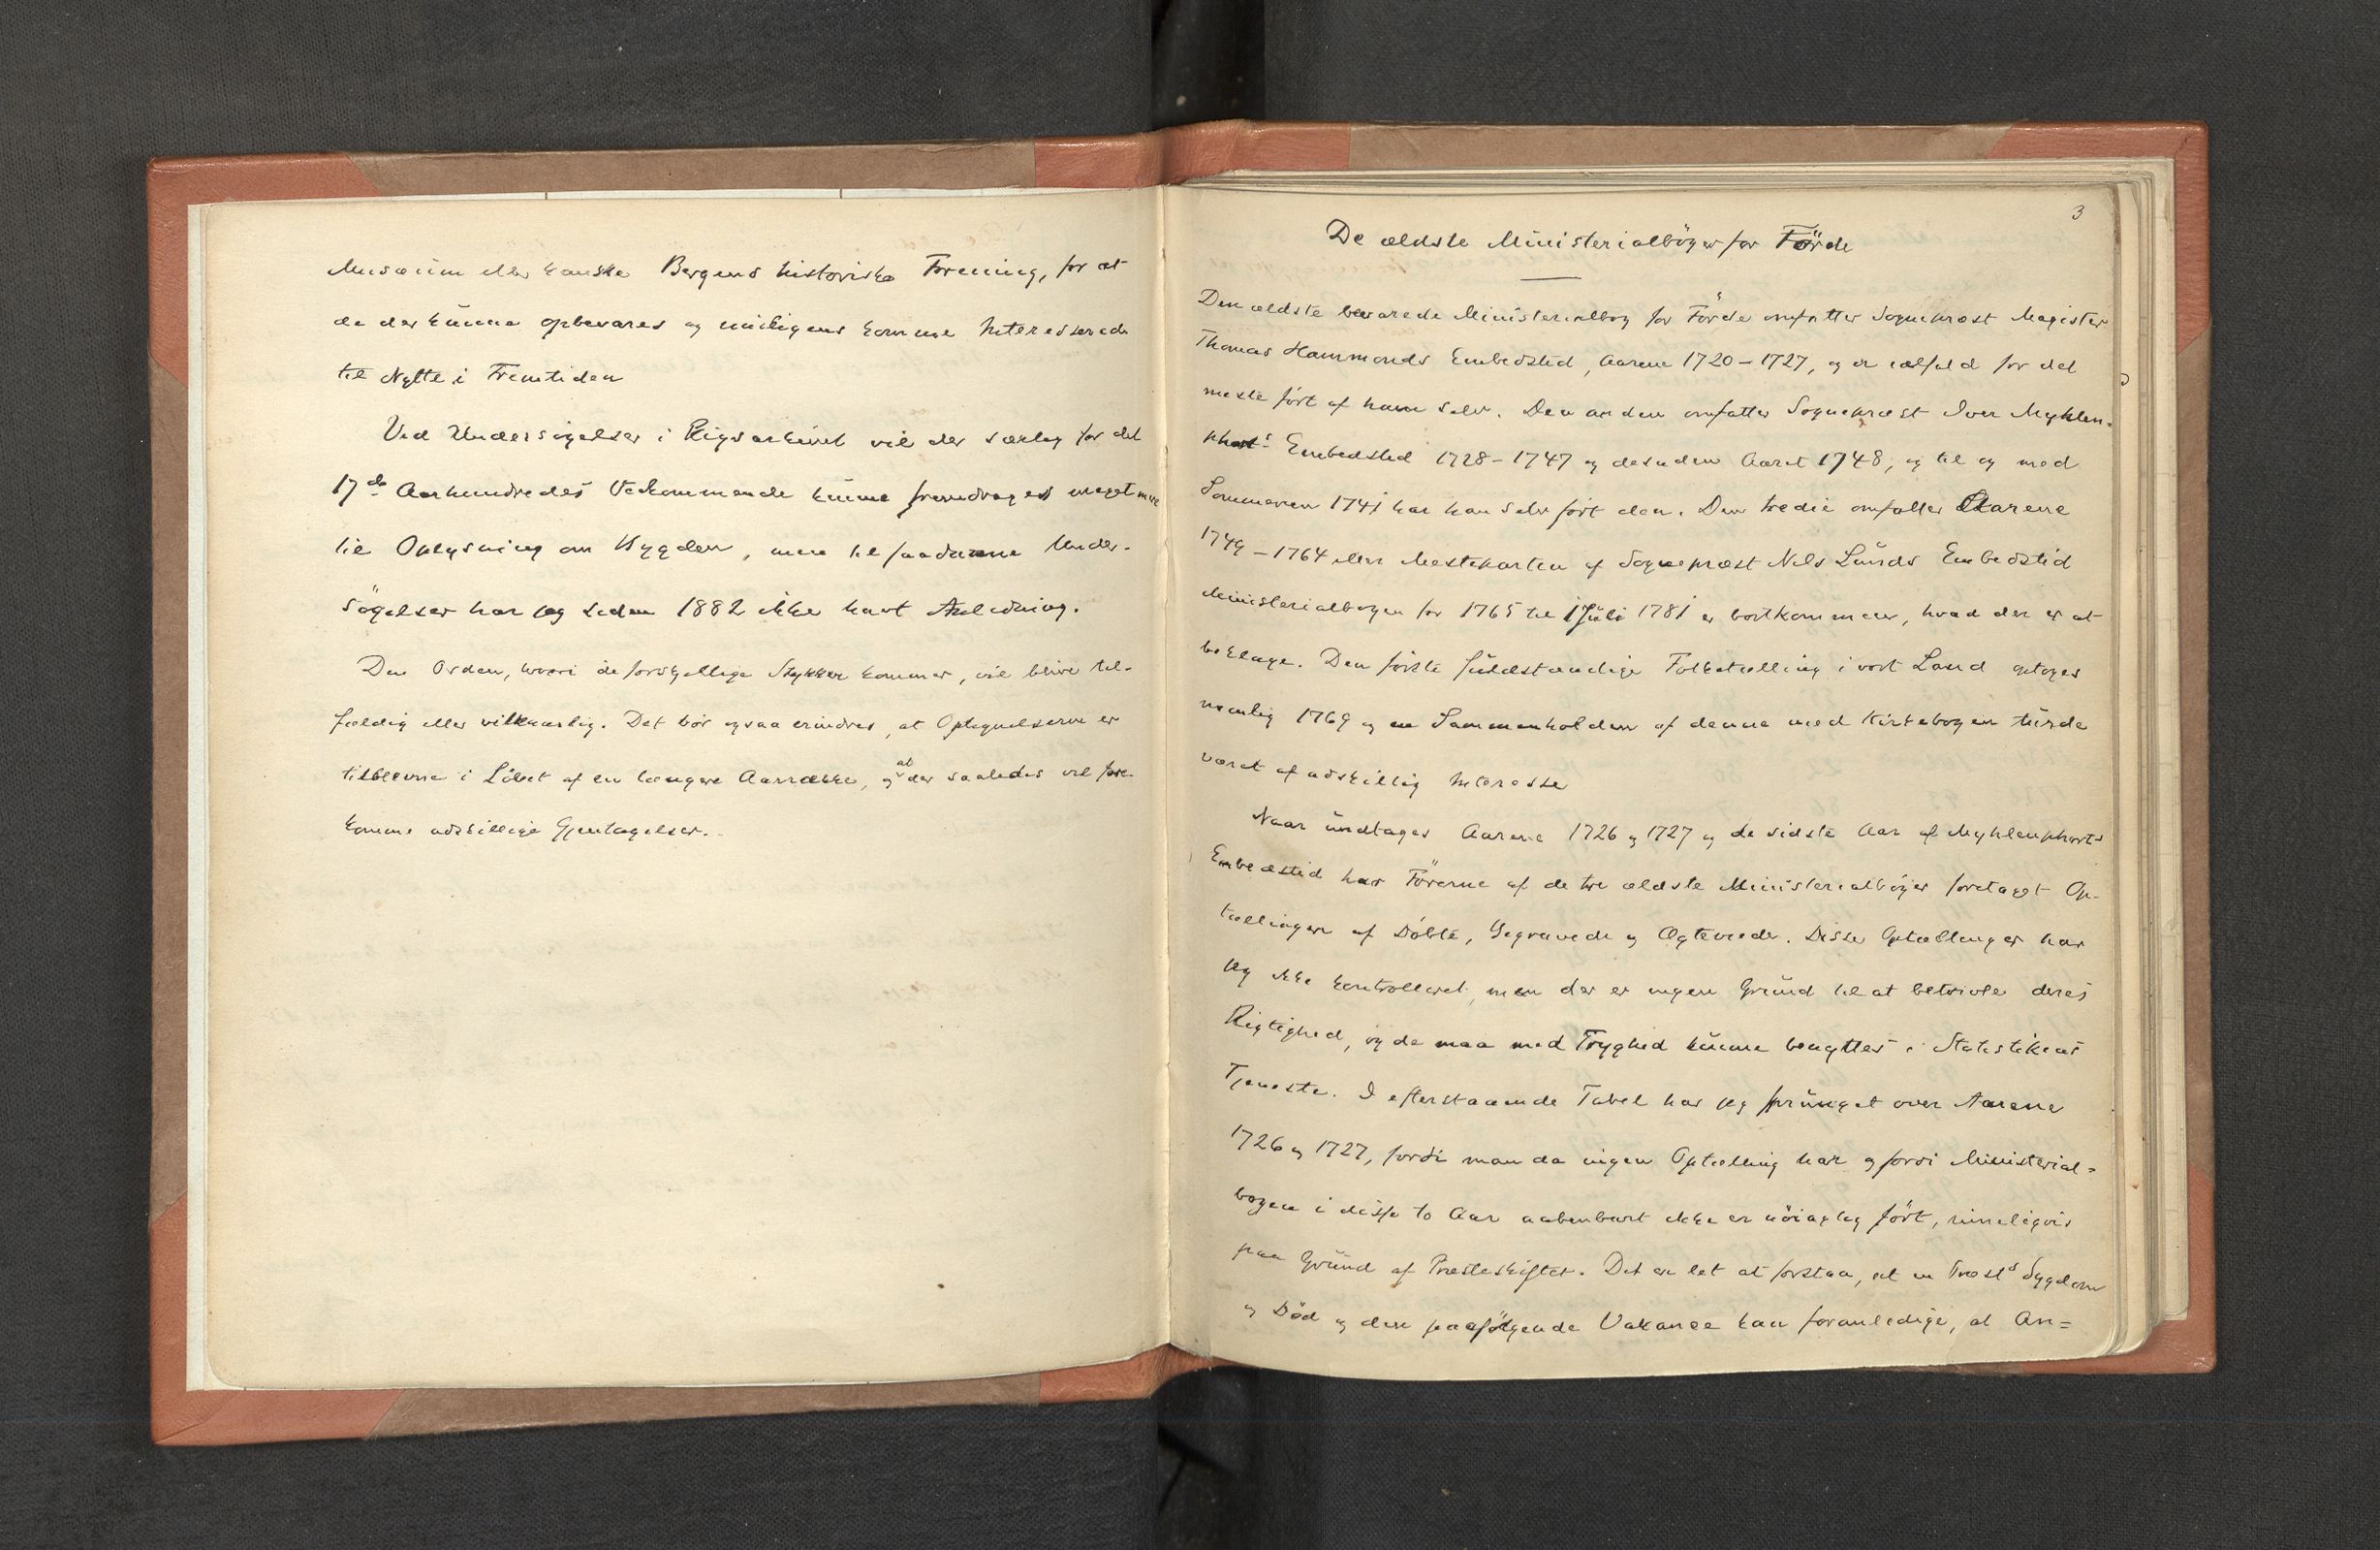 Musæum eller kanske Bergens historiske Forening, for at
de der kunne opbevares og muligens komme Interesserede
til Nytte i Fremtiden
Ved Undersøgelser i Rigsarkivet vil der særlig for det
17de Aarhundredes Vedkommende kunne fremdrages meget mere
til Oplysning om Bygden, men til saadanne Under-
søgelser har jeg siden 1882 ikke havt Anledning.
Den Orden, hvori de forskjellige Stykker kommer, vil blive til-
fældig eller vilkaarlig. Det bør ogsaa erindres, at Optegnelserne er
tilblevne i Løbet af en længere Aarrække, og at der saaledes vil fore-
komme adskillige Gjentagelser.
3
De ældste Ministerialbøger for Förde
Den ældste bevarede Ministerialbog for Förde omfatter Sogneprest Magister
Thomas Hammonds Embedstid, Aarene 1720-1727, og er ialfald for det
meste ført af ham selv. Den anden omfatter Sogneprest Iver Myklen-
phorts Embedstid 1728-1747 og desuden Aaret 1748, og til og med
Sommeren 1741 har han selv ført den. Den tredie omfatter Aarene
1749-1764 eller Mesteparten af Sogneprest Nils Lunds Embedstid
Ministerialbogen for 1765 til 1 Juli 1781 er bortkommen, hvad der er at
beklage. Den første fuldstændige Folketælling i vort Land optoges
nemlig 1769 og en Sammenholden af denne med Kirkebogen turde
været af adskillig Interesse
Naar undtages Aarene 1726 og 1727 og de sidste Aar af Myklenphorts
Embedstid har Førerne af de tre ældste Ministerialbøger foretaget Op-
tællinger af Døbte, Begravede og Ægteviede. Disse Optællinger har
jeg ikke kontrolleret, men der er ingen Grund til at betvivle deres
Rigtighed, og de maa med Tryghed kunne benyttes i Statistikens
Tjeneste. I efterstaaende Tabel har jeg sprunget over Aarene
1726 og 1727, fordi man da ingen Optælling har og fordi Ministerial=
bogen i disse to Aar aabenbart ikke er nøiagtig ført, rimeligvis
paa Grund af Presteskiftet. Det er let at forstaa, at en Prests Sygdom
og Død og den paafølgende Vakance kan foranledige, at An=